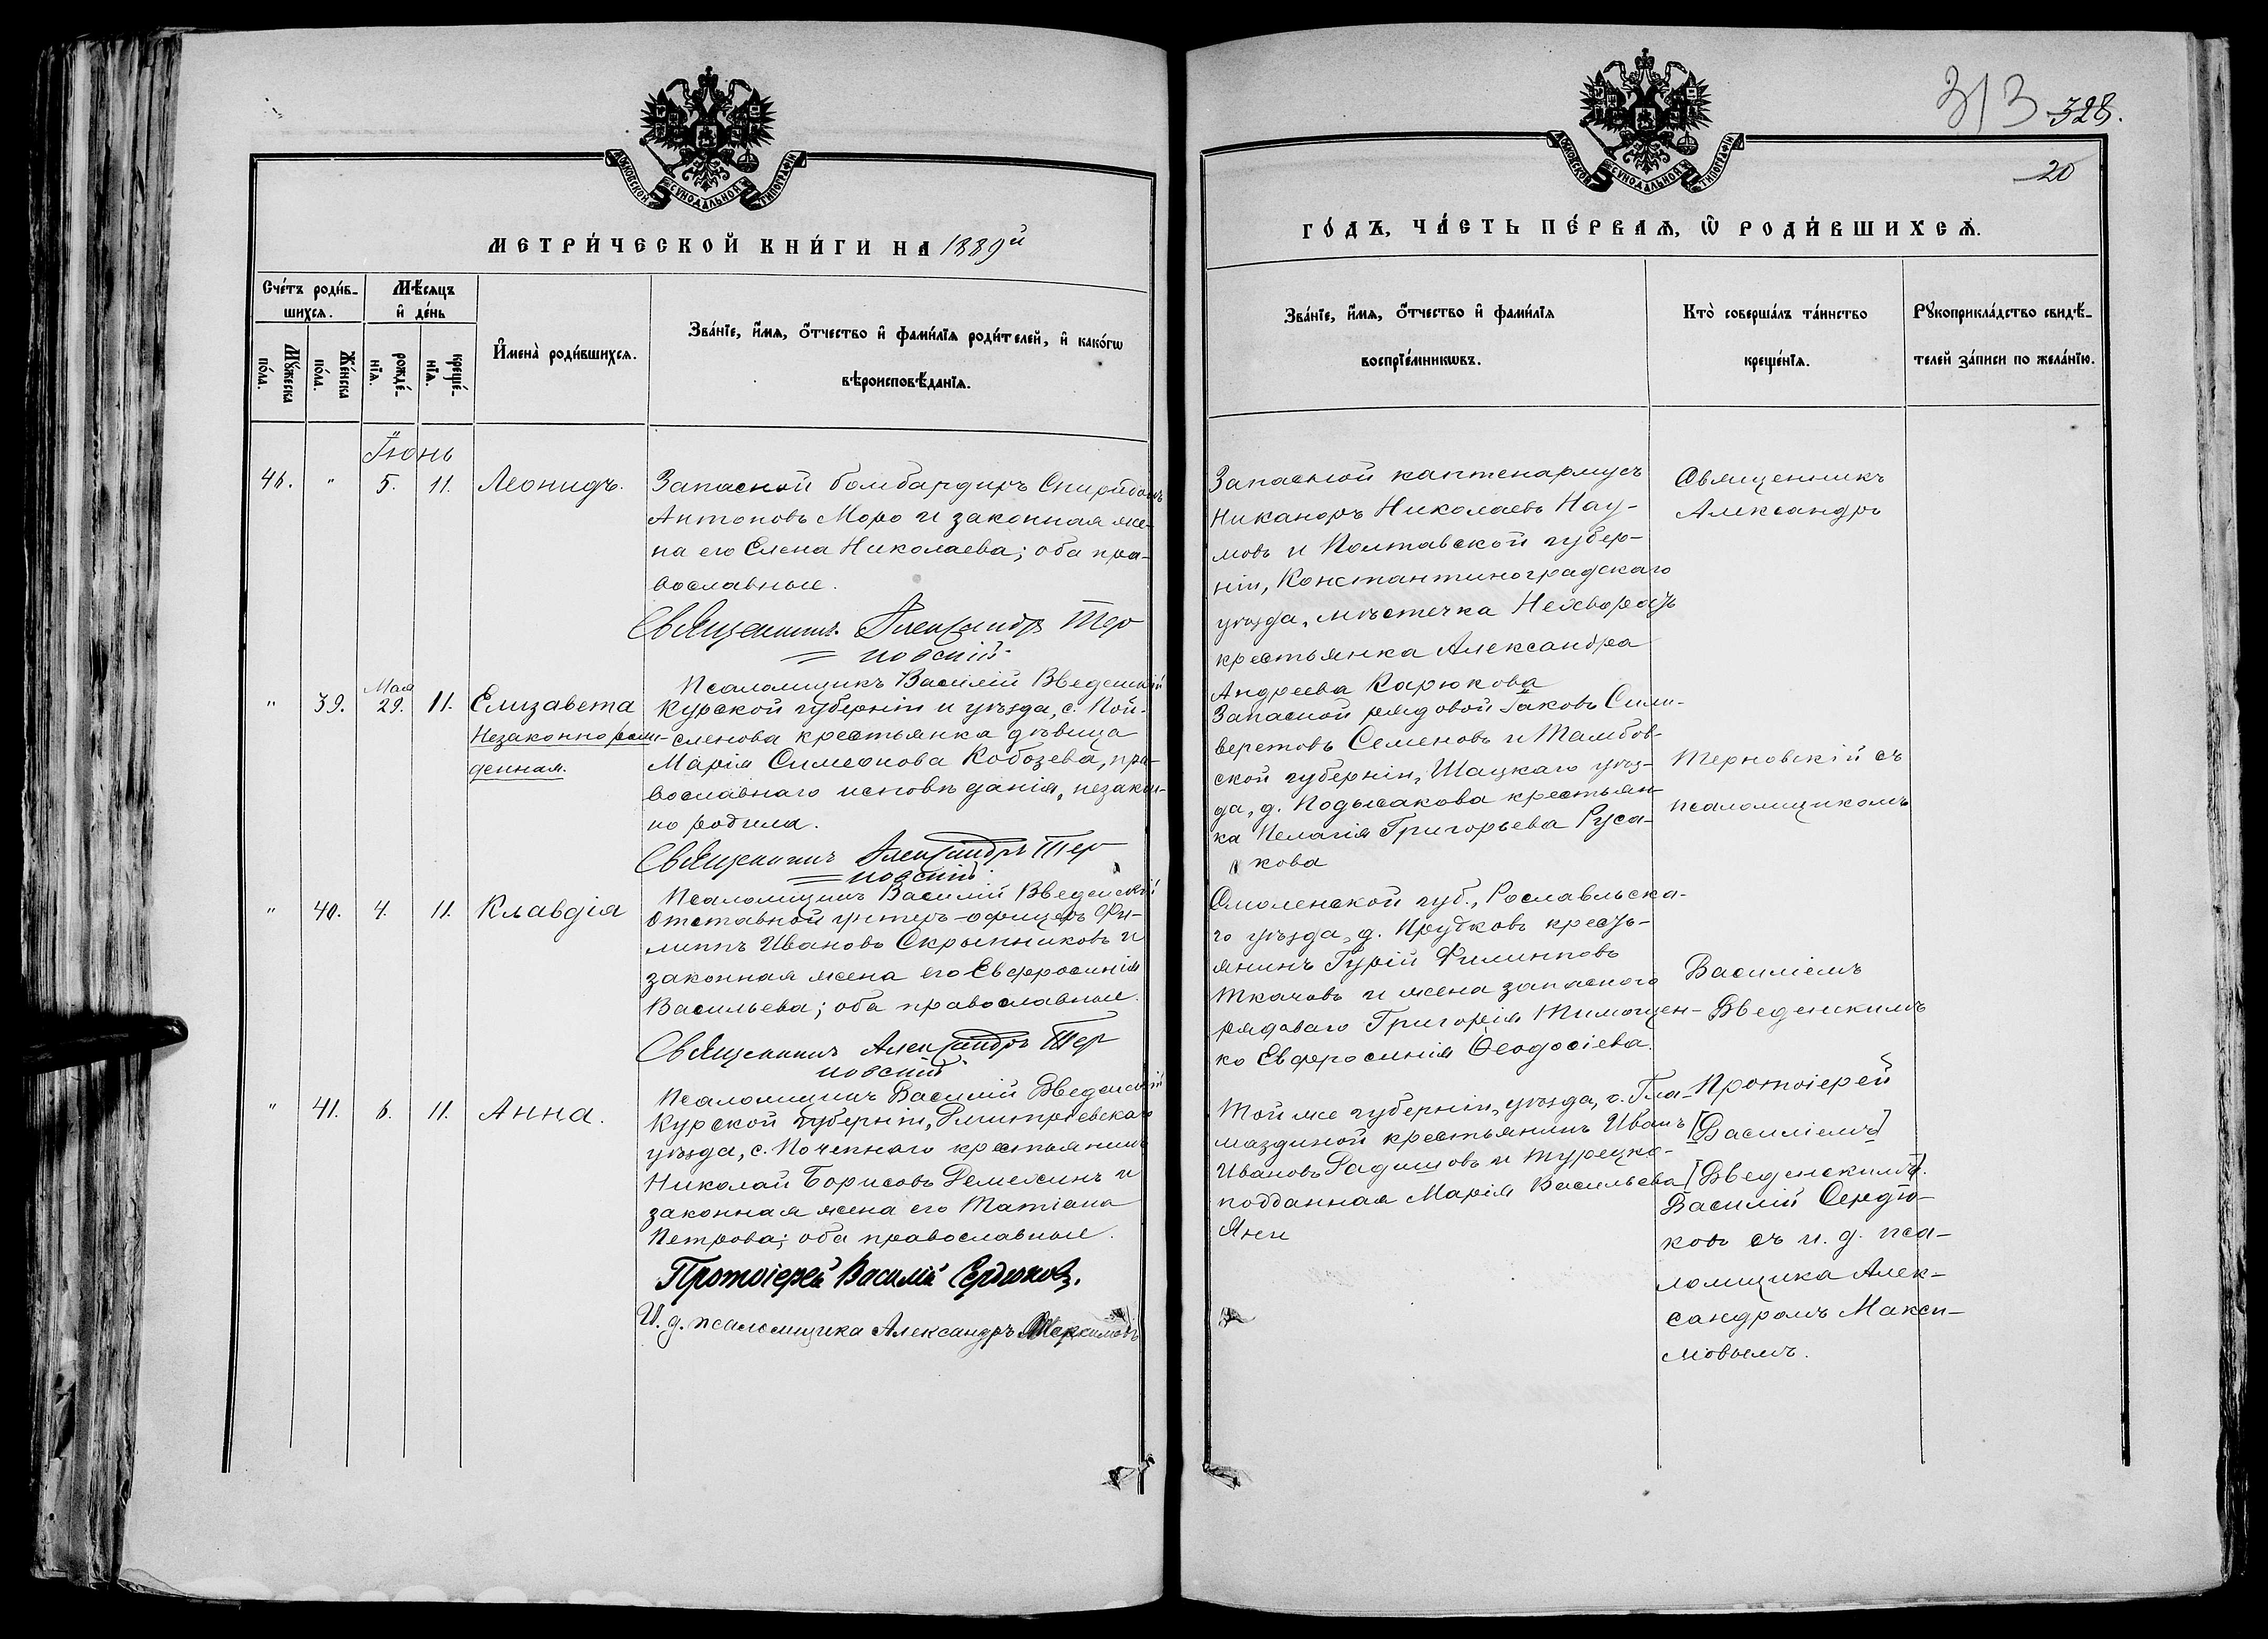 МОСКОВСКОЙ СѴНОДАЛЬНОЙ ТИПОГРАФІИ
МЕТРИ́ЧЕСКОЙ КНИ́ГИ НА 1889й
Сче́тъ роди́в-
шихсѧ.
Мѣсѧцъ
и҆ де́нь
Мꙋ́жеска
по́ла.
Же́нска
по́ла.
рожде́-
нїѧ.
креще́-
нїѧ.
И҆мена̀ роди́вшихсѧ.
Зва́нїе, и҆́мѧ, ѻ҆́тчество и҆ фами́лїѧ роди́телей, и҆ како́гѡ
вѣроисповѣ́данїѧ.
Іюнь
46. " 5. 11. Леонидъ.
Запасной бомбардиръ Спиридонъ
Антоновъ Моро и законная же-
на его Елена Николаева; оба пра-
вославные.
Священникъ Александръ Тер
новскій
Псаломщикъ Василій Введенскій
" 39. Мая 29. 11. Елизавета
Незаконнорож-
денная.
Курской губерніи и уѣзда, с. Пой-
сленова крестьянка дѣвица
Марія Симеонова Кобозева, пра-
вославнаго исповѣданія, незакон-
но родила.
Священникъ Александръ Тер
новскій
Псаломщикъ Василій Введенскій
" 40. 4. 11. Клавдія
Отставной унтеръ-офицеръ Фи-
липпъ Ивановъ Скрыпниковъ и
законная жена его Евфросинія
Васильева; оба православные.
Священникъ Александръ Тер
новскій
Псаломщикъ Василій Введенскій
" 41. 6. 11. Анна.
Курской губерніи, Дмитріевскаго
уѣзда, с. Почепнаго крестьянинъ
Николай Борисовъ Демехинъ и
законная жена его Татіана
Петрова; оба православные.
Протоіерей Василій Сердюковъ.
И. д. псаломщика Александръ Максимовъ
313 328.
20
МОСКОВСКОЙ СѴНОДАЛЬНОЙ ТИПОГРАФІИ
ГО́ДЪ, ЧА́СТЬ ПЕ́РВАѦ, Ѽ РОДИ́ВШИХСѦ.
Зва́нїе, и҆́мѧ, ѻ҆́тчество и҆ фами́лїѧ
воспрїе́мникѡвъ.
Кто̀ соверша́лъ та́инство
креще́нїѧ.
Рꙋкоприкла́дство свидѣ́-
телей за́писи по жела́нїю.
Запасной каптенармусъ
Никаноръ Николаевъ Нау-
мовъ и Полтавской губер-
ніи, Константиноградскаго
уѣзда, мѣстечка Нехворощъ
крестьянка Александра
Андреева Карюкова
Запасной рядовой Іаковъ Сили-
верстовъ Семеновъ и Тамбов-
ской губерніи, Шацкаго уѣз-
да, д. Подысакова крестьян-
ка Пелагія Григорьева Руса-
кова
Смоленской губ., Рославльска-
го уѣзда, д. Прудковъ кресть-
янинъ Гурій Филипповъ
Ткачовъ и жена запаснаго
рядоваго Григорія Тимощен-
ко Евфросинія Ѳеодосіева.
Той же губерніи, уѣзда, с. Гла-
маздиной крестьянинъ Иванъ
Ивановъ Радишовъ и турецко-
подданная Марія Васильева
Яни
Священникъ
Александръ
Терновскій съ
псаломщикомъ
Василіемъ
Введенскимъ
Протоіерей
[Василіемъ]
[Введенскимъ].
Василій Сердю-
ковъ съ и. д. пса-
ломщика Алек-
сандромъ Макси-
мовымъ.